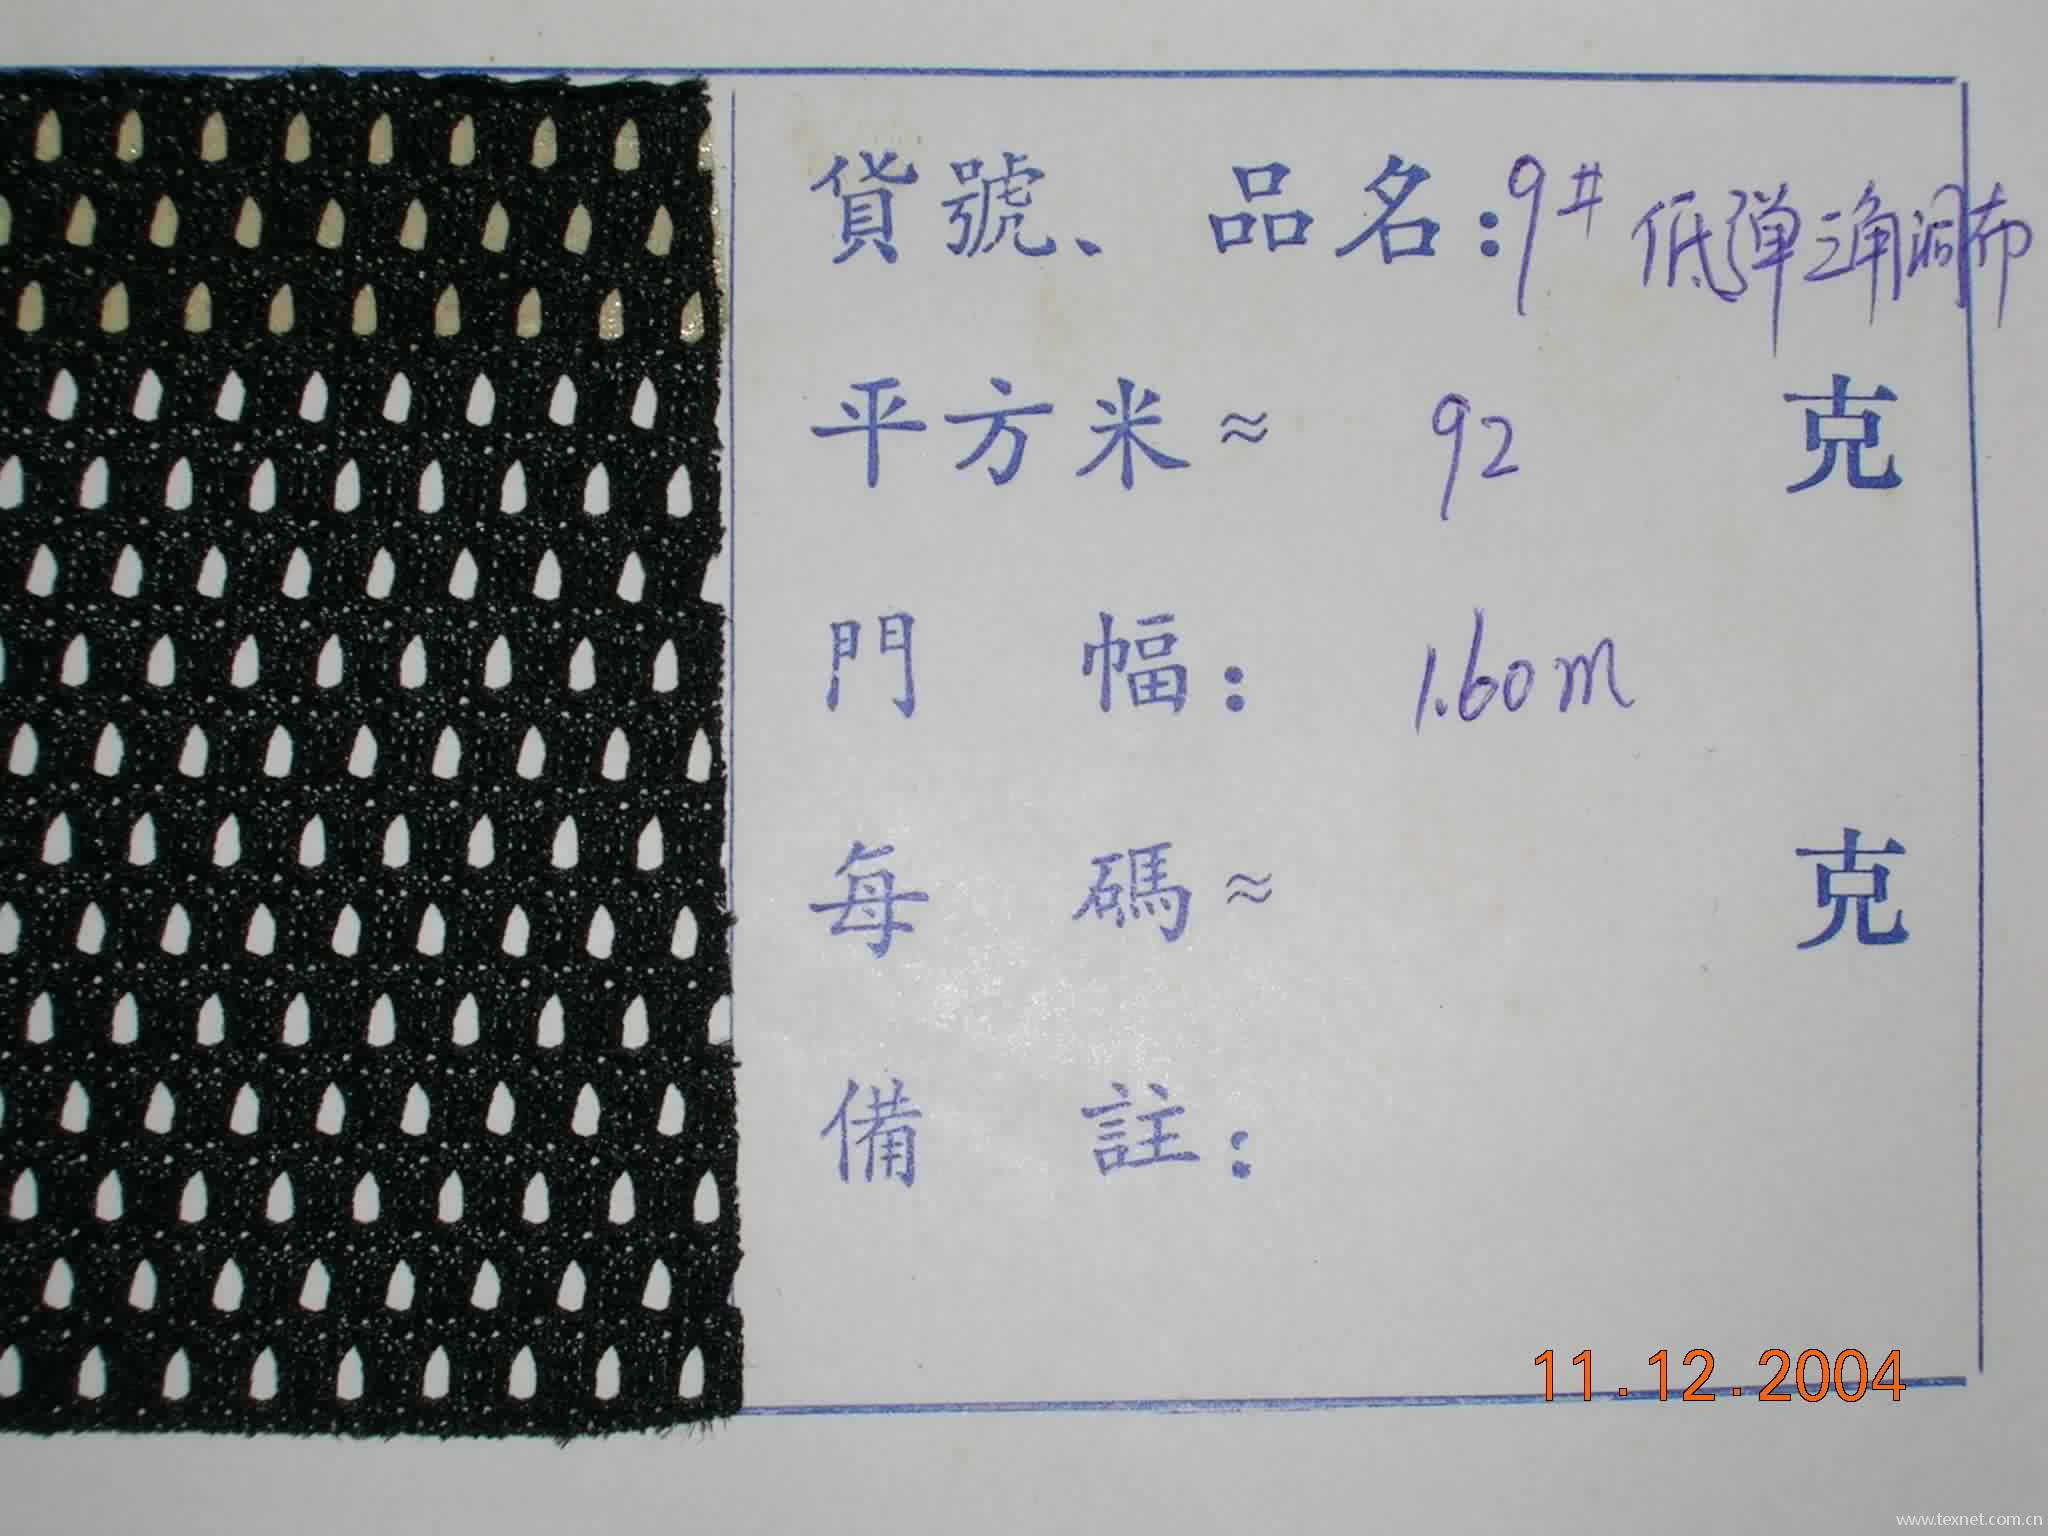 貨號、品名:9# 低弹三角洞布
平方米≈ 92 克
門幅: 1.60m
每碼≈ 克
備註:
11.12.2004
www.texnet.com.cn